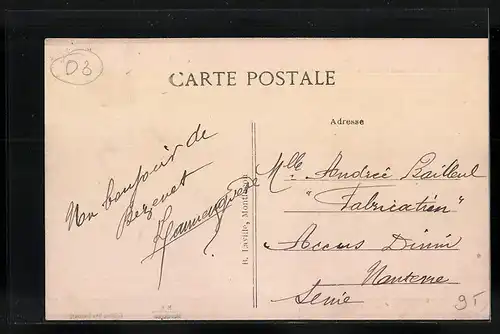 D3
CARTE POSTALE
Adresse
Un bonjour de
Bezenet
B. Laville, Montluçon
Mlle Andrée Bailleul
"Fabrication"
Accus Dinin
Nanterre
Seine
9F